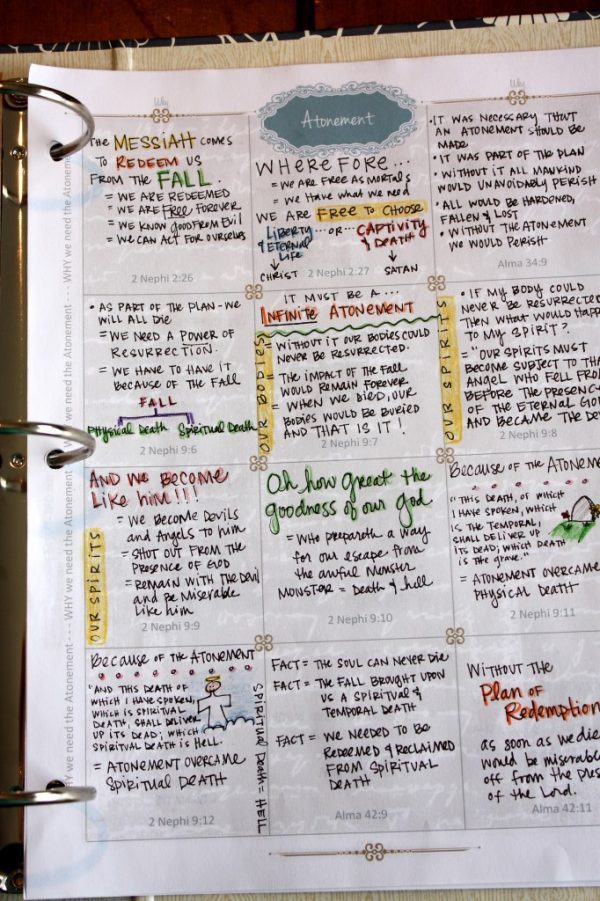 Why
Atonement
Why
WHY we need the Atonement --- WHY we need the Atonement --- WHY we need the Atonement --- WHY we need the Atonement
THE MESSIAH COMES
TO REDEEM US
FROM THE FALL
= WE ARE REDEEMED
= WE ARE FREE FOREVER
= WE KNOW GOOD FROM EVIL
= WE CAN ACT FOR OURSELVES
2 Nephi 2:26
WHEREFORE...
= WE ARE FREE AS MORTALS
= WE HAVE WHAT WE NEED
WE ARE FREE TO CHOOSE
LIBERTY & ETERNAL LIFE ...OR... CAPTIVITY & DEATH
CHRIST SATAN
2 Nephi 2:27
• IT WAS NECESSARY THAT
AN ATONEMENT SHOULD BE
MADE
• IT WAS PART OF THE PLAN
• WITHOUT IT ALL MANKIND
WOULD UNAVOIDABLY PERISH
• ALL WOULD BE HARDENED,
FALLEN & LOST
• WITHOUT THE ATONEMENT
WE WOULD PERISH
Alma 34:9
• AS PART OF THE PLAN-WE
WILL ALL DIE.
= WE NEED A POWER OF
RESURRECTION.
= WE HAVE TO HAVE IT
BECAUSE OF THE FALL
FALL
PHYSICAL DEATH SPIRITUAL DEATH
2 Nephi 9:6
OUR BODIES
IT MUST BE A ...
INFINITE ATONEMENT
= WITHOUT IT OUR BODIES COULD
NEVER BE RESURRECTED.
= THE IMPACT OF THE FALL
WOULD REMAIN FOREVER
= WHEN WE DIED, OUR
BODIES WOULD BE BURIED
AND THAT IS IT!
2 Nephi 9:7
OUR SPIRITS
• IF MY BODY COULD
NEVER BE RESURRECTED
THEN WHAT WOULD HAPPEN
TO MY SPIRIT?
= "OUR SPIRITS MUST
BECOME SUBJECT TO THAT
ANGEL WHO FELL FROM
BEFORE THE PRESENCE
OF THE ETERNAL GOD
AND BECAME THE DEV
2 Nephi 9:8
AND WE BECOME
LIKE HIM!!!
OUR SPIRITS
= WE BECOME DEVILS
AND ANGELS TO HIM
= SHUT OUT FROM THE
PRESENCE OF GOD
= REMAIN WITH THE DEVIL
AND BE MISERABLE
LIKE HIM
2 Nephi 9:9
Oh how great the
goodness of our God
= WHO PREPARETH A WAY
FOR OUR ESCAPE FROM
THE AWFUL MONSTER
MONSTER = DEATH & HELL
2 Nephi 9:10
BECAUSE OF THE ATONEME
"THIS DEATH, OF WHICH
I HAVE SPOKEN, WHICH
IS THE TEMPORAL,
SHALL DELIVER UP
ITS DEAD; WHICH DEATH
IS THE GRAVE."
= ATONEMENT OVERCAME
PHYSICAL DEATH
2 Nephi 9:11
BECAUSE OF THE ATONEMENT
"AND THIS DEATH OF
WHICH I HAVE SPOKEN,
WHICH IS SPIRITUAL
DEATH, SHALL DELIVER
UP ITS DEAD; WHICH
SPIRITUAL DEATH IS HELL.
= ATONEMENT OVERCAME
SPIRITUAL DEATH
2 Nephi 9:12
SPIRITUAL DEATH = HELL
FACT = THE SOUL CAN NEVER DIE
FACT = THE FALL BROUGHT UPON
US A SPIRITUAL &
TEMPORAL DEATH
FACT = WE NEEDED TO BE
REDEEMED & RECLAIMED
FROM SPIRITUAL
DEATH
Alma 42:9
WITHOUT THE
PLAN OF
REDEMPTION
as soon as we die
would be miserable
off from the pres
of the Lord.
Alma 42:11